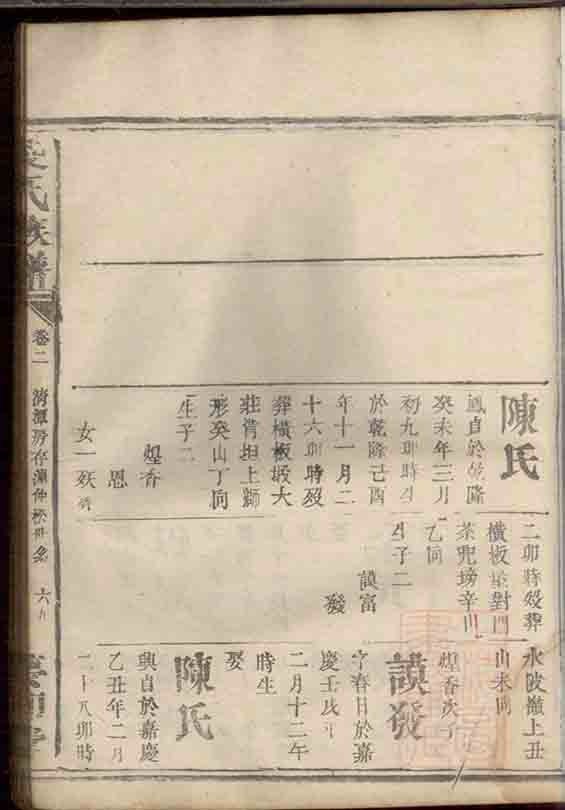 陳氏
鳳自於乾隆
癸未年三月
初九卯時生
於乾隆己酉
年十一月二
十六卯時歿
葬橫板塅大
莊背坦上獅
形癸山丁向
生子二
煌香
恩
女一歿
二卯時歿葬
橫板塅對門
茶兜塝辛山
乙向
生子二
謨富
發
永陂嶺上丑
山未向
煌香次子
謨發
字春日於嘉
慶壬戌年
二月十二午
時生
娶
陳氏
興自於嘉慶
乙丑年二月
二十八卯時
氏族譜
卷二
清潭房存